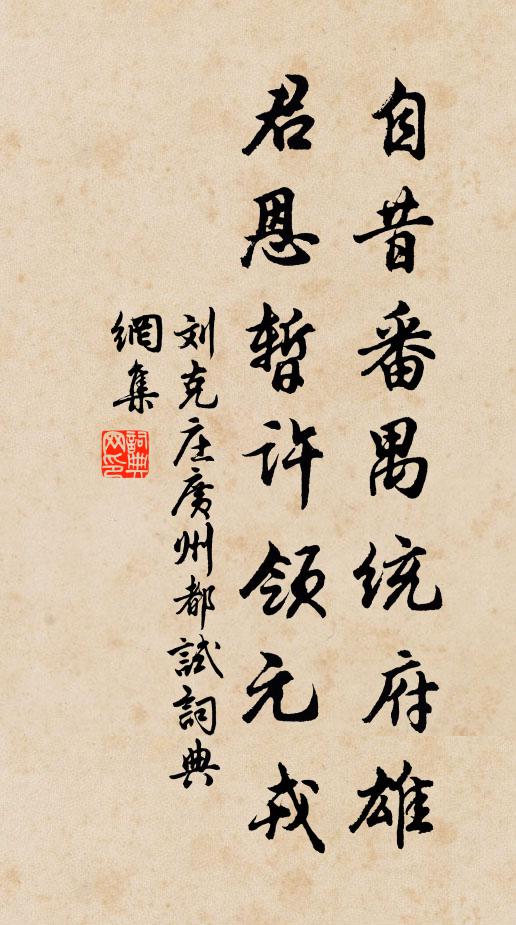 自昔番禺统府雄
君恩暂许领元戎
刘克庄廣州都試詞典
網集
詞典網印